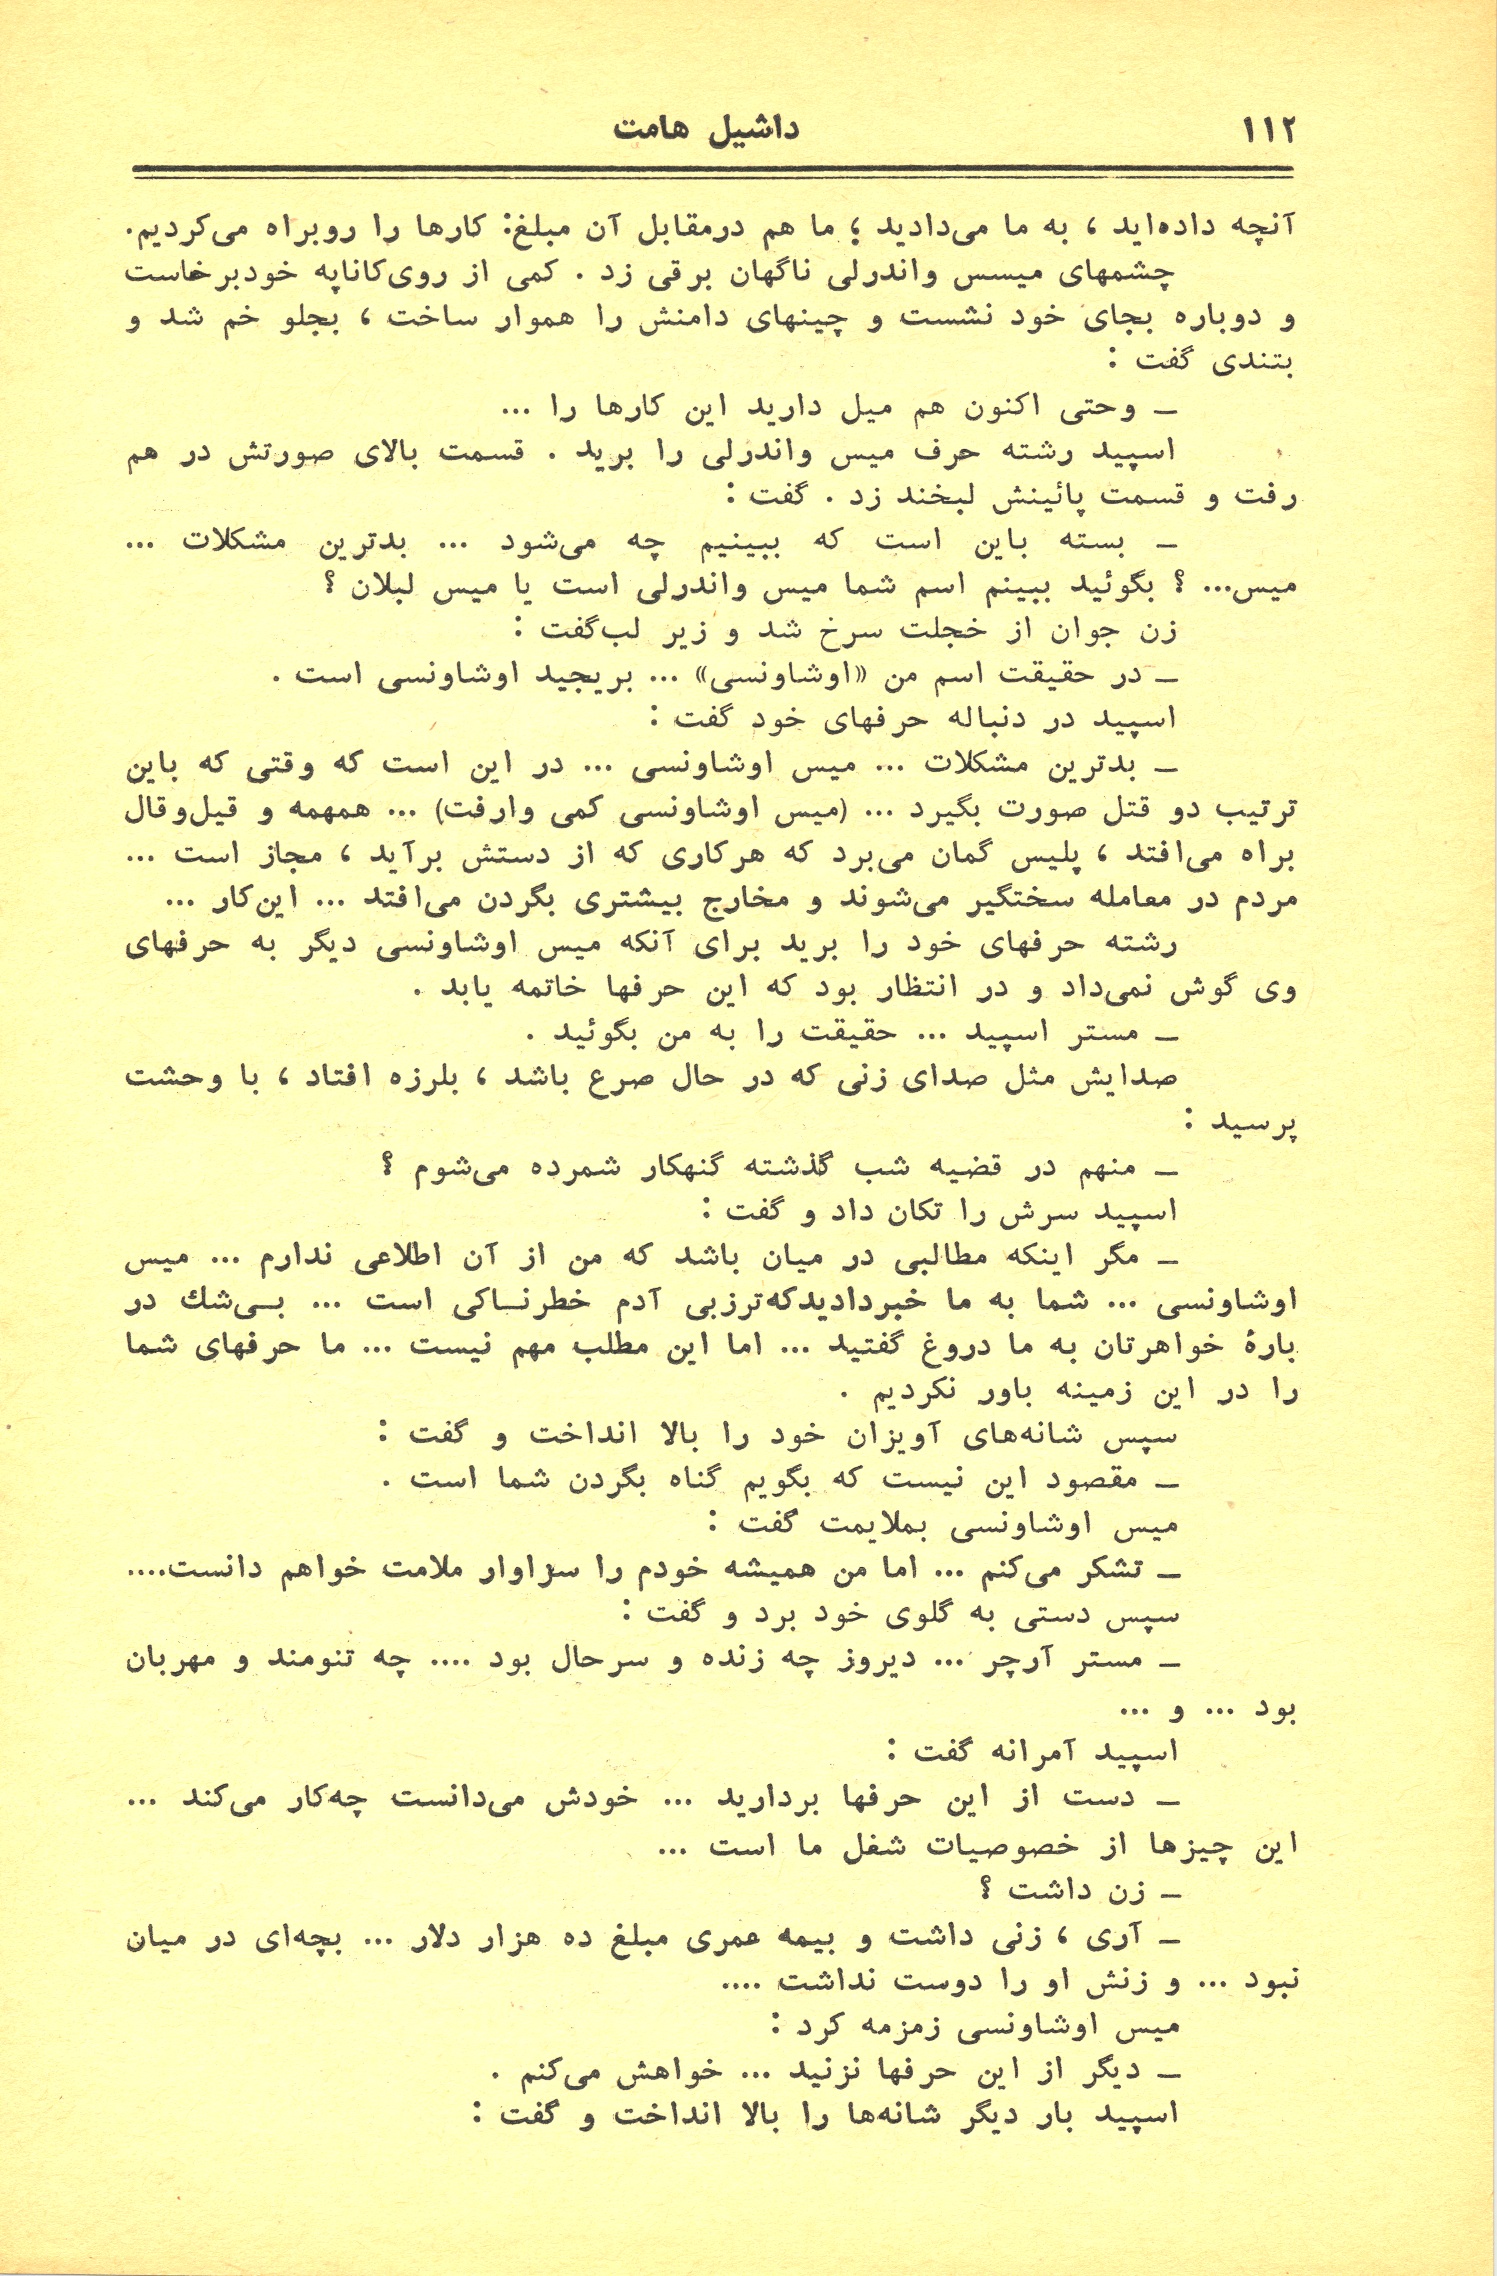 ۱۱۲ داشیل هامت
آنچه داده‌اید ، به ما می‌دادید ؛ ما هم درمقابل آن مبلغ: کارها را روبراه می‌کردیم.
چشمهای میسس واندرلی ناگهان برقی زد . کمی از روی‌کاناپه خودبرخاست
و دوباره بجای خود نشست و چینهای دامنش را هموار ساخت ، بجلو خم شد و
بتندی گفت :
ـ وحتی اکنون هم میل دارید این کارها را ...
اسپید رشته حرف میس واندرلی را برید . قسمت بالای صورتش در هم
رفت و قسمت پائینش لبخند زد . گفت :
ـ بسته باین است که ببینیم چه می‌شود ... بدترین مشکلات ...
میس... ؟ بگوئید ببینم اسم شما میس واندرلی است یا میس لبلان ؟
زن جوان از خجلت سرخ شد و زیر لب‌گفت :
ـ در حقیقت اسم من «اوشاونسی» ... بریجید اوشاونسی است .
اسپید در دنباله حرفهای خود گفت :
ـ بدترین مشکلات ... میس اوشاونسی ... در این است که وقتی که باین
ترتیب دو قتل صورت بگیرد ... (میس اوشاونسی کمی وارفت) ... همهمه و قیل‌وقال
براه می‌افتد ، پلیس گمان می‌برد که هرکاری که از دستش برآید ، مجاز است ...
مردم در معامله سختگیر می‌شوند و مخارج بیشتری بگردن می‌افتد ... این‌کار ...
رشته حرفهای خود را برید برای آنکه میس اوشاونسی دیگر به حرفهای
وی گوش نمی‌داد و در انتظار بود که این حرفها خاتمه یابد .
ـ مستر اسپید ... حقیقت را به من بگوئید .
صدایش مثل صدای زنی که در حال صرع باشد ، بلرزه افتاد ، با وحشت
پرسید :
ـ منهم در قضیه شب گذشته گنهکار شمرده می‌شوم ؟
اسپید سرش را تکان داد و گفت :
ـ مگر اینکه مطالبی در میان باشد که من از آن اطلاعی ندارم ... میس
اوشاونسی ... شما به ما خبردادیدکه‌ترزبی آدم خطرنـاکی است ... بـی‌شك در
بارهٔ خواهرتان به ما دروغ گفتید ... اما این مطلب مهم نیست ... ما حرفهای شما
را در این زمینه باور نکردیم .
سپس شانه‌های آویزان خود را بالا انداخت و گفت :
ـ مقصود این نیست که بگویم گناه بگردن شما است .
میس اوشاونسی بملایمت گفت :
ـ تشکر می‌کنم ... اما من همیشه خودم را سزاوار ملامت خواهم دانست....
سپس دستی به گلوی خود برد و گفت :
ـ مستر آرچر ... دیروز چه زنده و سرحال بود .... چه تنومند و مهربان
بود ... و ...
اسپید آمرانه گفت :
ـ دست از این حرفها بردارید ... خودش می‌دانست چه‌کار می‌کند ...
این چیزها از خصوصیات شغل ما است ...
ـ زن داشت ؟
ـ آری ، زنی داشت و بیمه عمری مبلغ ده هزار دلار ... بچه‌ای در میان
نبود ... و زنش او را دوست نداشت ....
میس اوشاونسی زمزمه کرد :
ـ دیگر از این حرفها نزنید ... خواهش می‌کنم .
اسپید بار دیگر شانه‌ها را بالا انداخت و گفت :